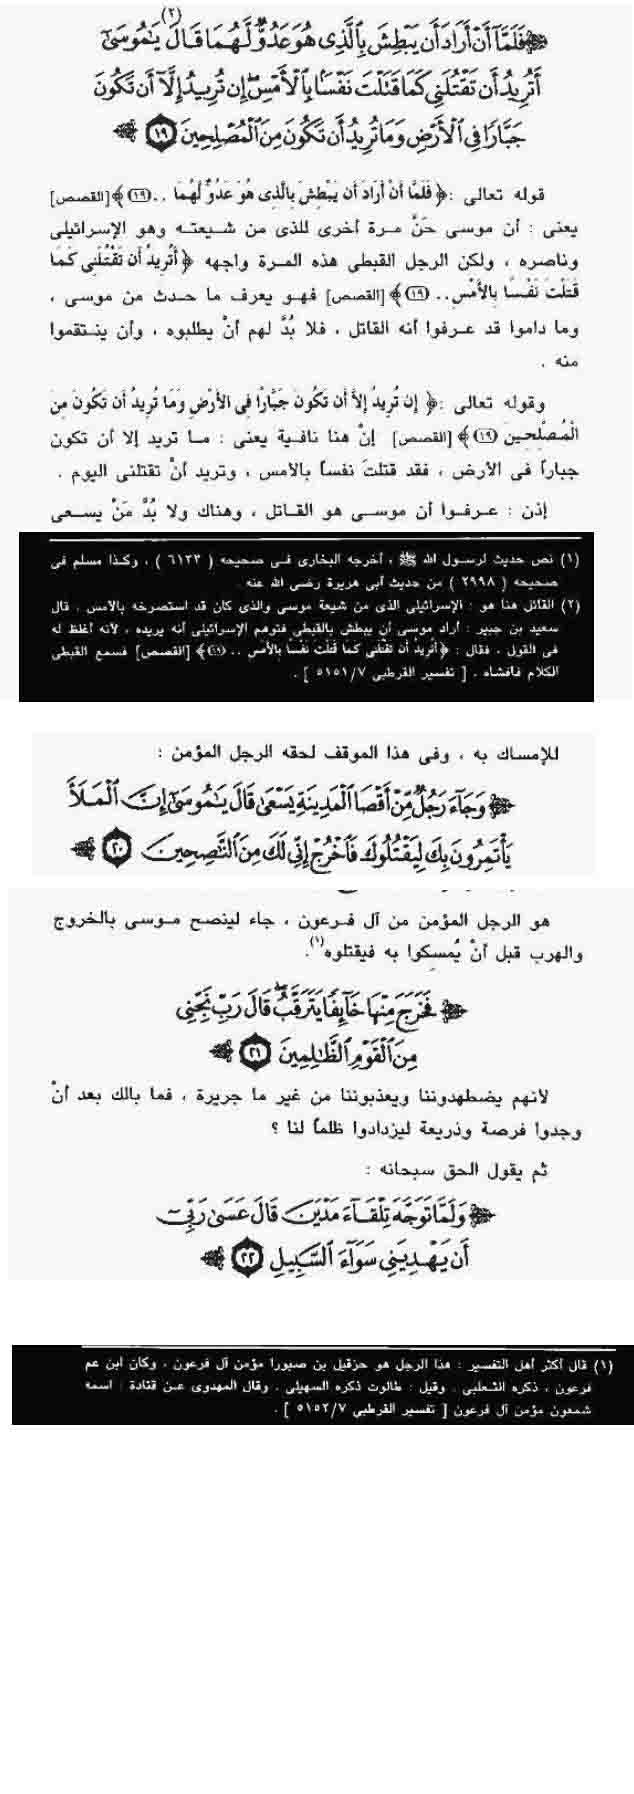 ﴿ فَلَمَّآ أَنْ أَرَادَ أَن يَبْطِشَ بِٱلَّذِى هُوَ عَدُوٌّ لَّهُمَا قَالَ يَٰمُوسَىٰٓ (٢)
أَتُرِيدُ أَن تَقْتُلَنِى كَمَا قَتَلْتَ نَفْسًۢا بِٱلْأَمْسِ ۖ إِن تُرِيدُ إِلَّآ أَن تَكُونَ
جَبَّارًا فِى ٱلْأَرْضِ وَمَا تُرِيدُ أَن تَكُونَ مِنَ ٱلْمُصْلِحِينَ ١٩ ﴾
قوله تعالى : ﴿ فَلَمَّا أَنْ أَرَادَ أَن يَبْطِشَ بِالَّذِى هُوَ عَدُوٌّ لَّهُمَا .. (١٩) ﴾ [القصص]
يعنى : أن موسى حَنَّ مرة أخرى للذى من شيعته وهو الإسرائيلى
وناصره ، ولكن الرجل القبطى هذه المرة واجهه ﴿ أَتُرِيدُ أَن تَقْتُلَنِى كَمَا
قَتَلْتَ نَفْسًا بِالأَمْسِ .. (١٩) ﴾ [القصص] فهو يعرف ما حدث من موسى ،
وما داموا قد عرفوا أنه القاتل ، فلا بُدَّ لهم أنْ يطلبوه ، وأن ينتقموا
منه .
وقوله تعالى : ﴿ إِن تُرِيدُ إِلاَّ أَن تَكُونَ جَبَّارًا فِى الأَرْضِ وَمَا تُرِيدُ أَن تَكُونَ مِنَ
الْمُصْلِحِينَ (١٩) ﴾ [القصص] إنْ هنا نافية يعنى : ما تريد إلا أن تكون
جباراً فى الأرض ، فقد قتلتَ نفساً بالأمس ، وتريد أنْ تقتلنى اليوم .
إذن : عرفوا أن موسى هو القاتل ، وهناك ولا بُدَّ مَنْ يسعى
(١) نص حديث لرسول الله ﷺ ، أخرجه البخارى فى صحيحه ( ٦١٣٣ ) ، وكذا مسلم فى
صحيحه ( ٢٩٩٨ ) من حديث أبى هريرة رضى الله عنه .
(٢) القائل هنا هو : الإسرائيلى الذى من شيعة موسى والذى كان قد استصرخه بالأمس . قال
سعيد بن جبير : أراد موسى أن يبطش بالقبطى فتوهم الإسرائيلى أنه يريده ، لأنه أغلظ له
فى القول ، فقال : ﴿ أَتُرِيدُ أَن تَقْتُلَنِى كَمَا قَتَلْتَ نَفْسًا بِالأَمْسِ .. (١٩) ﴾ [القصص] فسمع القبطى
الكلام فأفشاه . [ تفسير القرطبى ٥١٥١/٧ ] .
للإمساك به ، وفى هذا الموقف لحقه الرجل المؤمن :
﴿ وَجَآءَ رَجُلٌ مِّنْ أَقْصَا ٱلْمَدِينَةِ يَسْعَىٰ قَالَ يَٰمُوسَىٰٓ إِنَّ ٱلْمَلَأَ
يَأْتَمِرُونَ بِكَ لِيَقْتُلُوكَ فَٱخْرُجْ إِنِّى لَكَ مِنَ ٱلنَّٰصِحِينَ ٢٠ ﴾
هو الرجل المؤمن من آل فرعون ، جاء لينصح موسى بالخروج
والهرب قبل أنْ يُمسكوا به فيقتلوه(١).
﴿ فَخَرَجَ مِنْهَا خَآئِفًا يَتَرَقَّبُ ۖ قَالَ رَبِّ نَجِّنِى
مِنَ ٱلْقَوْمِ ٱلظَّٰلِمِينَ ٢١ ﴾
لأنهم يضطهدوننا ويعذبوننا من غير ما جريرة ، فما بالك بعد أنْ
وجدوا فرصة وذريعة ليزدادوا ظلماً لنا ؟
ثم يقول الحق سبحانه :
﴿ وَلَمَّا تَوَجَّهَ تِلْقَآءَ مَدْيَنَ قَالَ عَسَىٰ رَبِّىٓ
أَن يَهْدِيَنِى سَوَآءَ ٱلسَّبِيلِ ٢٢ ﴾
(١) قال أكثر أهل التفسير : هذا الرجل هو حزقيل بن صبورا مؤمن آل فرعون ، وكان ابن عم
فرعون ، ذكره الثعلبى . وقيل : طالوت ذكره السهيلى . وقال المهدوى عن قتادة : اسمه
شمعون مؤمن آل فرعون [ تفسير القرطبى ٥١٥٢/٧ ] .